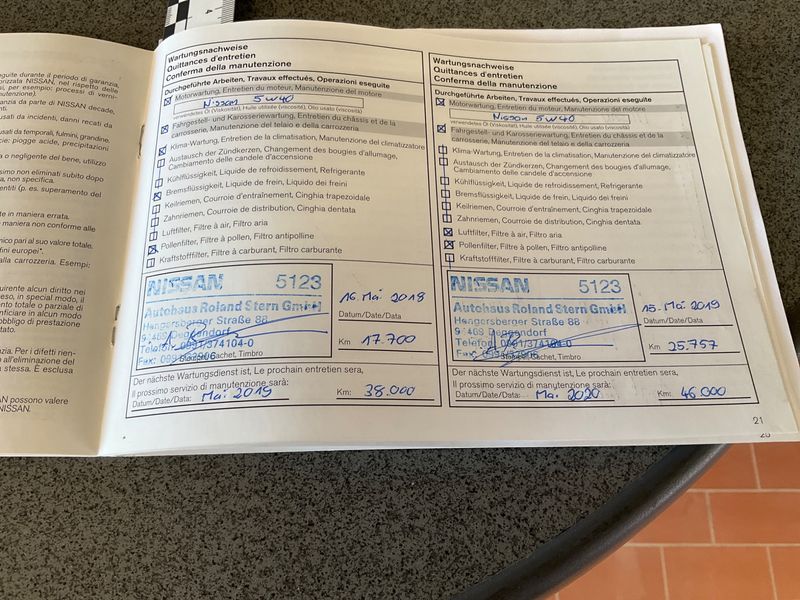 4
eguite durante il periodo di garanzia,
orizzata NISSAN, nel rispetto delle
si, per esempio: processi di verni-
nutenzione).
garanzia da parte di NISSAN decade,
nti.
usati da incidenti, danni recati da
usati da temporali, fulmini, grandine,
pie: piogge acide, precipitazioni
o negligente del bene, utilizzo
simo non eliminati subito dopo
a, non specifica.
enti (p. es. superamento del
in maniera errata.
na maniera non conforme alle
nico pari al suo valore totale.
fini europei*.
alla carrozzeria. Esempi:
uirente alcun diritto nei
eso, in special modo, il
ento totale o parziale di
nificiare in alcun modo
obbligo di prestazione
tato.
zia. Per i difetti rien-
all'eliminazione del
a stessa. È esclusa
AN possono valere
NISSAN.
Wartungsnachweise
Quittances d'entretien
Conferma della manutenzione
Durchgeführte Arbeiten, Travaux effectués, Operazioni eseguite
Motorwartung, Entretien du moteur, Manutenzione del motore
Nissan 5W40
verwendetes Öl (Viskosität), Huile utilisée (viscosité), Olio usato (viscosità)
Fahrgestell- und Karosseriewartung, Entretien du châssis et de la
carrosserie, Manutenzione del telaio e della carrozzeria
Klima-Wartung, Entretien de la climatisation, Manutenzione del climatizzatore
Austausch der Zündkerzen, Changement des bougies d'allumage,
Cambiamento delle candele d'accensione
Kühlflüssigkeit, Liquide de refroidissement, Refrigerante
Bremsflüssigkeit, Liquide de frein, Liquido dei freini
Keilriemen, Courroie d'entraînement, Cinghia trapezoidale
Zahnriemen, Courroie de distribution, Cinghia dentata
Luftfilter, Filtre à air, Filtro aria
Pollenfilter, Filtre à pollen, Filtro antipolline
Kraftstofffilter, Filtre à carburant, Filtro carburante
NISSAN 5123
Autohaus Roland Stern GmbH
Hengersberger Straße 88
94469 Deggendorf
Telefon: 0991/374104-0
Fax:
Stempel, Cachet, Timbro
16. Mai 2018
Datum/Date/Data
Km: 17.700
Der nächste Wartungsdienst ist, Le prochain entretien sera,
Il prossimo servizio di manutenzione sarà:
Datum/Date/Data: Mai 2019 Km: 38.000
Wartungsnachweise
Quittances d'entretien
Conferma della manutenzione
Durchgeführte Arbeiten, Travaux effectués, Operazioni eseguite
Motorwartung, Entretien du moteur, Manutenzione del motore
Nissan 5W40
verwendetes Öl (Viskosität), Huile utilisée (viscosité), Olio usato (viscosità)
Fahrgestell- und Karosseriewartung, Entretien du châssis et de la
carrosserie, Manutenzione del telaio e della carrozzeria
Klima-Wartung, Entretien de la climatisation, Manutenzione del climatizzatore
Austausch der Zündkerzen, Changement des bougies d'allumage,
Cambiamento delle candele d'accensione
Kühlflüssigkeit, Liquide de refroidissement, Refrigerante
Bremsflüssigkeit, Liquide de frein, Liquido dei freini
Keilriemen, Courroie d'entraînement, Cinghia trapezoidale
Zahnriemen, Courroie de distribution, Cinghia dentata
Luftfilter, Filtre à air, Filtro aria
Pollenfilter, Filtre à pollen, Filtro antipolline
Kraftstofffilter, Filtre à carburant, Filtro carburante
NISSAN 5123
Autohaus Roland Stern GmbH
Hengersberger Straße 88
94469 Deggendorf
Telefon: 0991/374104-0
Fax:
Stempel, Cachet, Timbro
15. Mai 2019
Datum/Date/Data
Km: 25.757
Der nächste Wartungsdienst ist, Le prochain entretien sera,
Il prossimo servizio di manutenzione sarà:
Datum/Date/Data: Mai 2020 Km: 46.000
21